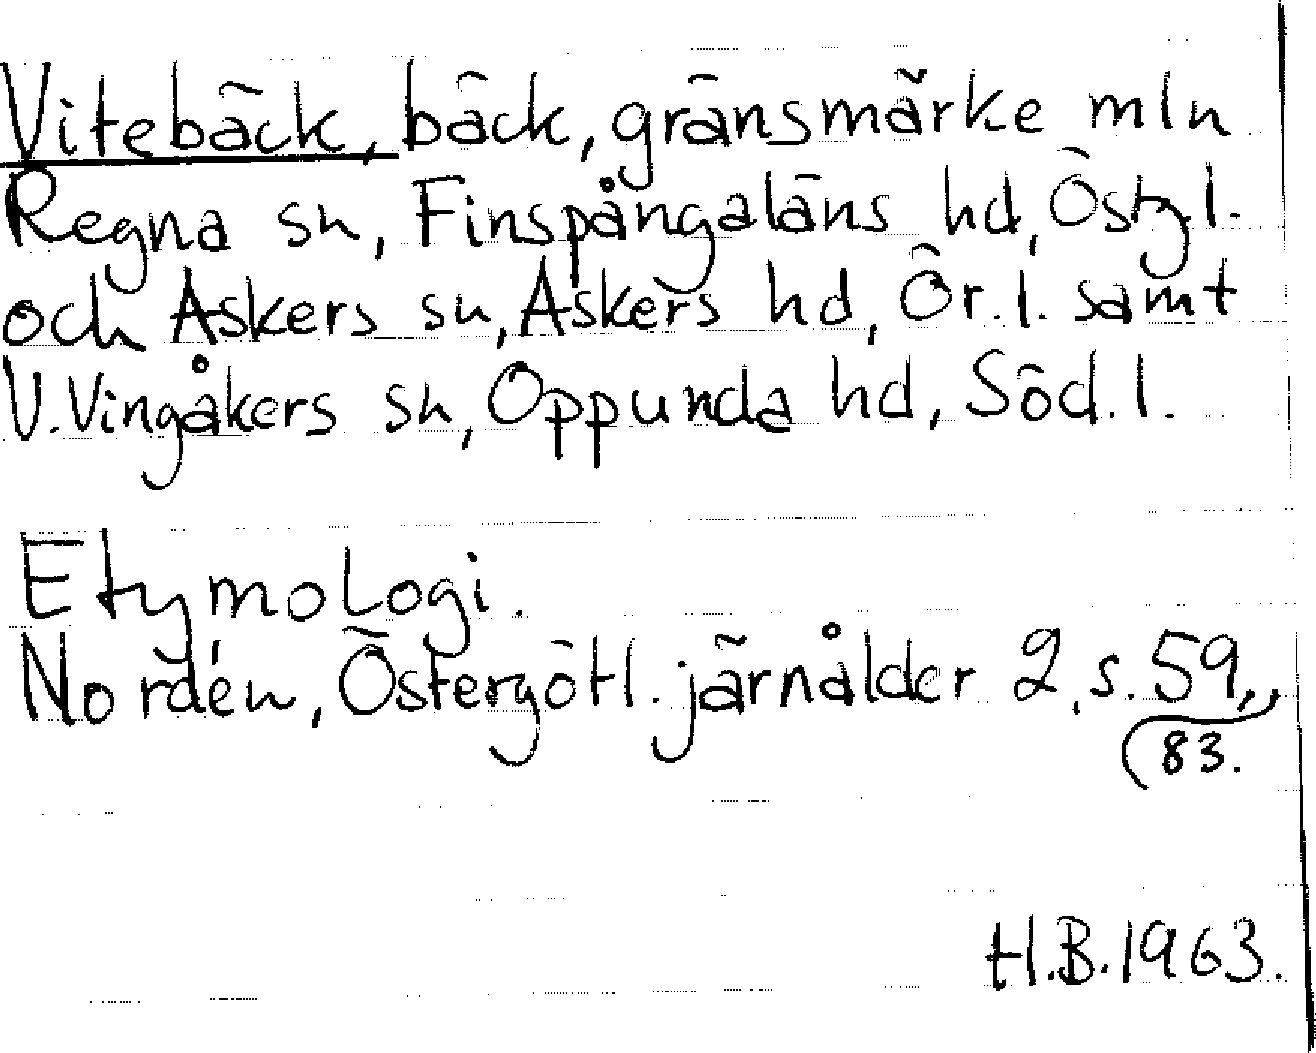 Vitebäck, bäck, gränsmärke mln
Regna sn, Finspångaläns hd, Östg.l.
och Askers sn, Askers hd, Ör.l. samt
V.Vingåkers sn, Oppunda hd, Söd.l.
Etymologi.
Nordén, Östergötl. järnålder 2, s. 59,,
83.
H.B.1963.